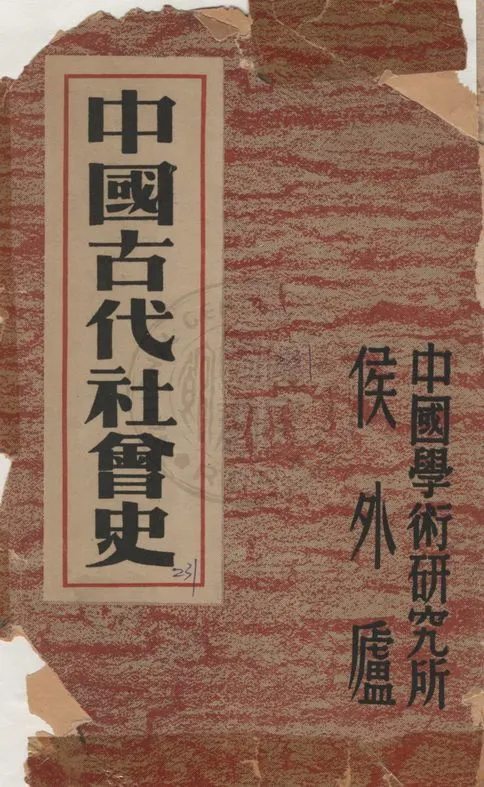 中國學術研究所
侯外廬
中國古代社會史
231